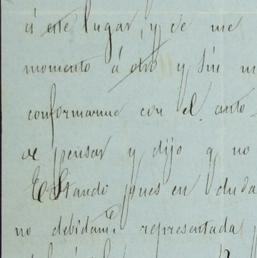 á este lugar, y de me
momento á otro y sin m
conformarme con el auto
de pensar y dijo q no
Estando pues en duda
no debidamte representada